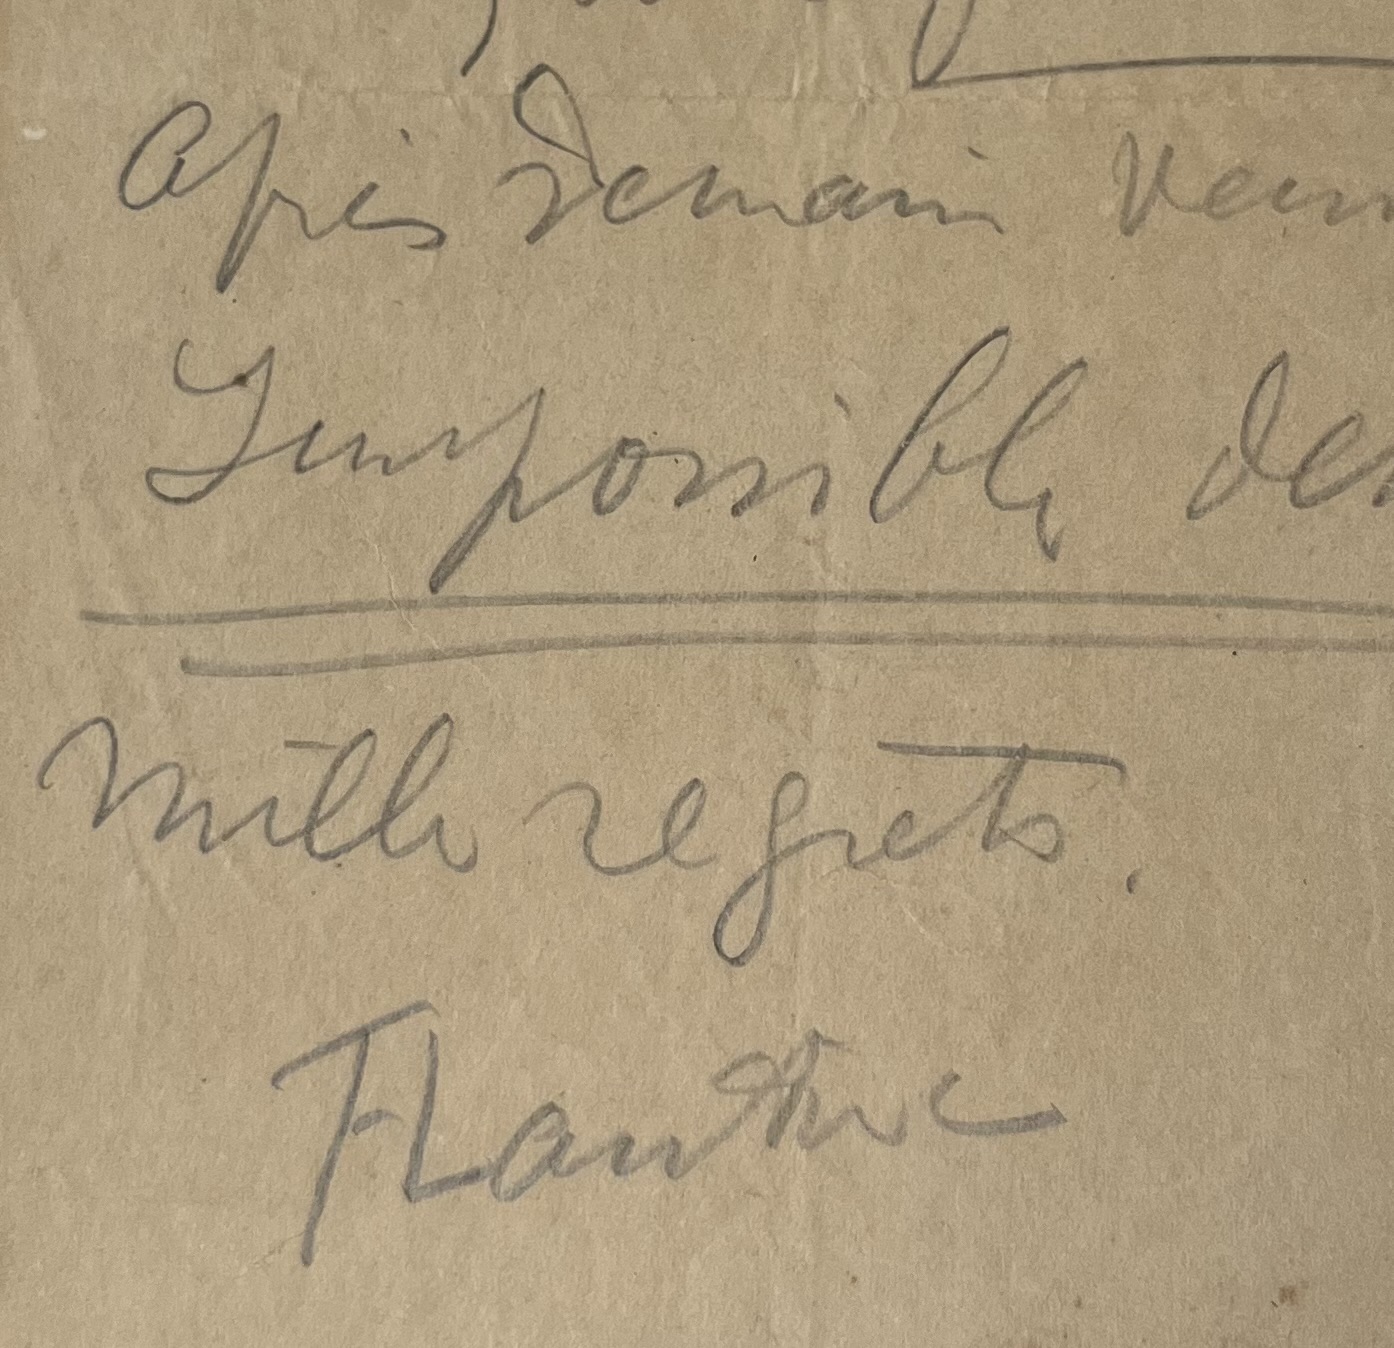 après demain
Impossible
mille regrets.